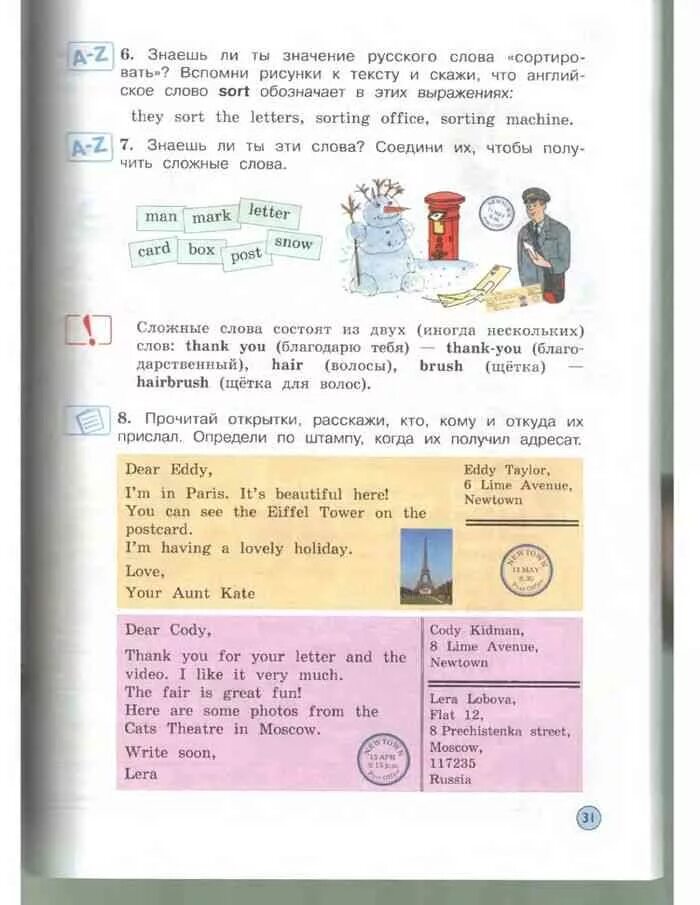 A-Z
6. Знаешь ли ты значение русского слова «сортиро-
вать»? Вспомни рисунки к тексту и скажи, что англий-
ское слово sort обозначает в этих выражениях:
they sort the letters, sorting office, sorting machine.
A-Z
7. Знаешь ли ты эти слова? Соедини их, чтобы полу-
чить сложные слова.
man mark letter
card box post snow
NEWTOWN
Сложные слова состоят из двух (иногда нескольких)
слов: thank you (благодарю тебя) — thank-you (благо-
дарственный), hair (волосы), brush (щётка) —
hairbrush (щётка для волос).
8. Прочитай открытки, расскажи, кто, кому и откуда их
прислал. Определи по штампу, когда их получил адресат.
Dear Eddy,
I'm in Paris. It's beautiful here!
You can see the Eiffel Tower on the
postcard.
I'm having a lovely holiday.
Love,
Your Aunt Kate
Eddy Taylor,
6 Lime Avenue,
Newtown
NEWTOWN
13 MAY
Post Office
Dear Cody,
Thank you for your letter and the
video. I like it very much.
The fair is great fun!
Here are some photos from the
Cats Theatre in Moscow.
Write soon,
Lera
NEWTOWN
15 APR
Post Office
Cody Kidman,
8 Lime Avenue,
Newtown
Lera Lobova,
Flat 12,
8 Prechistenka street,
Moscow,
117235
Russia
31